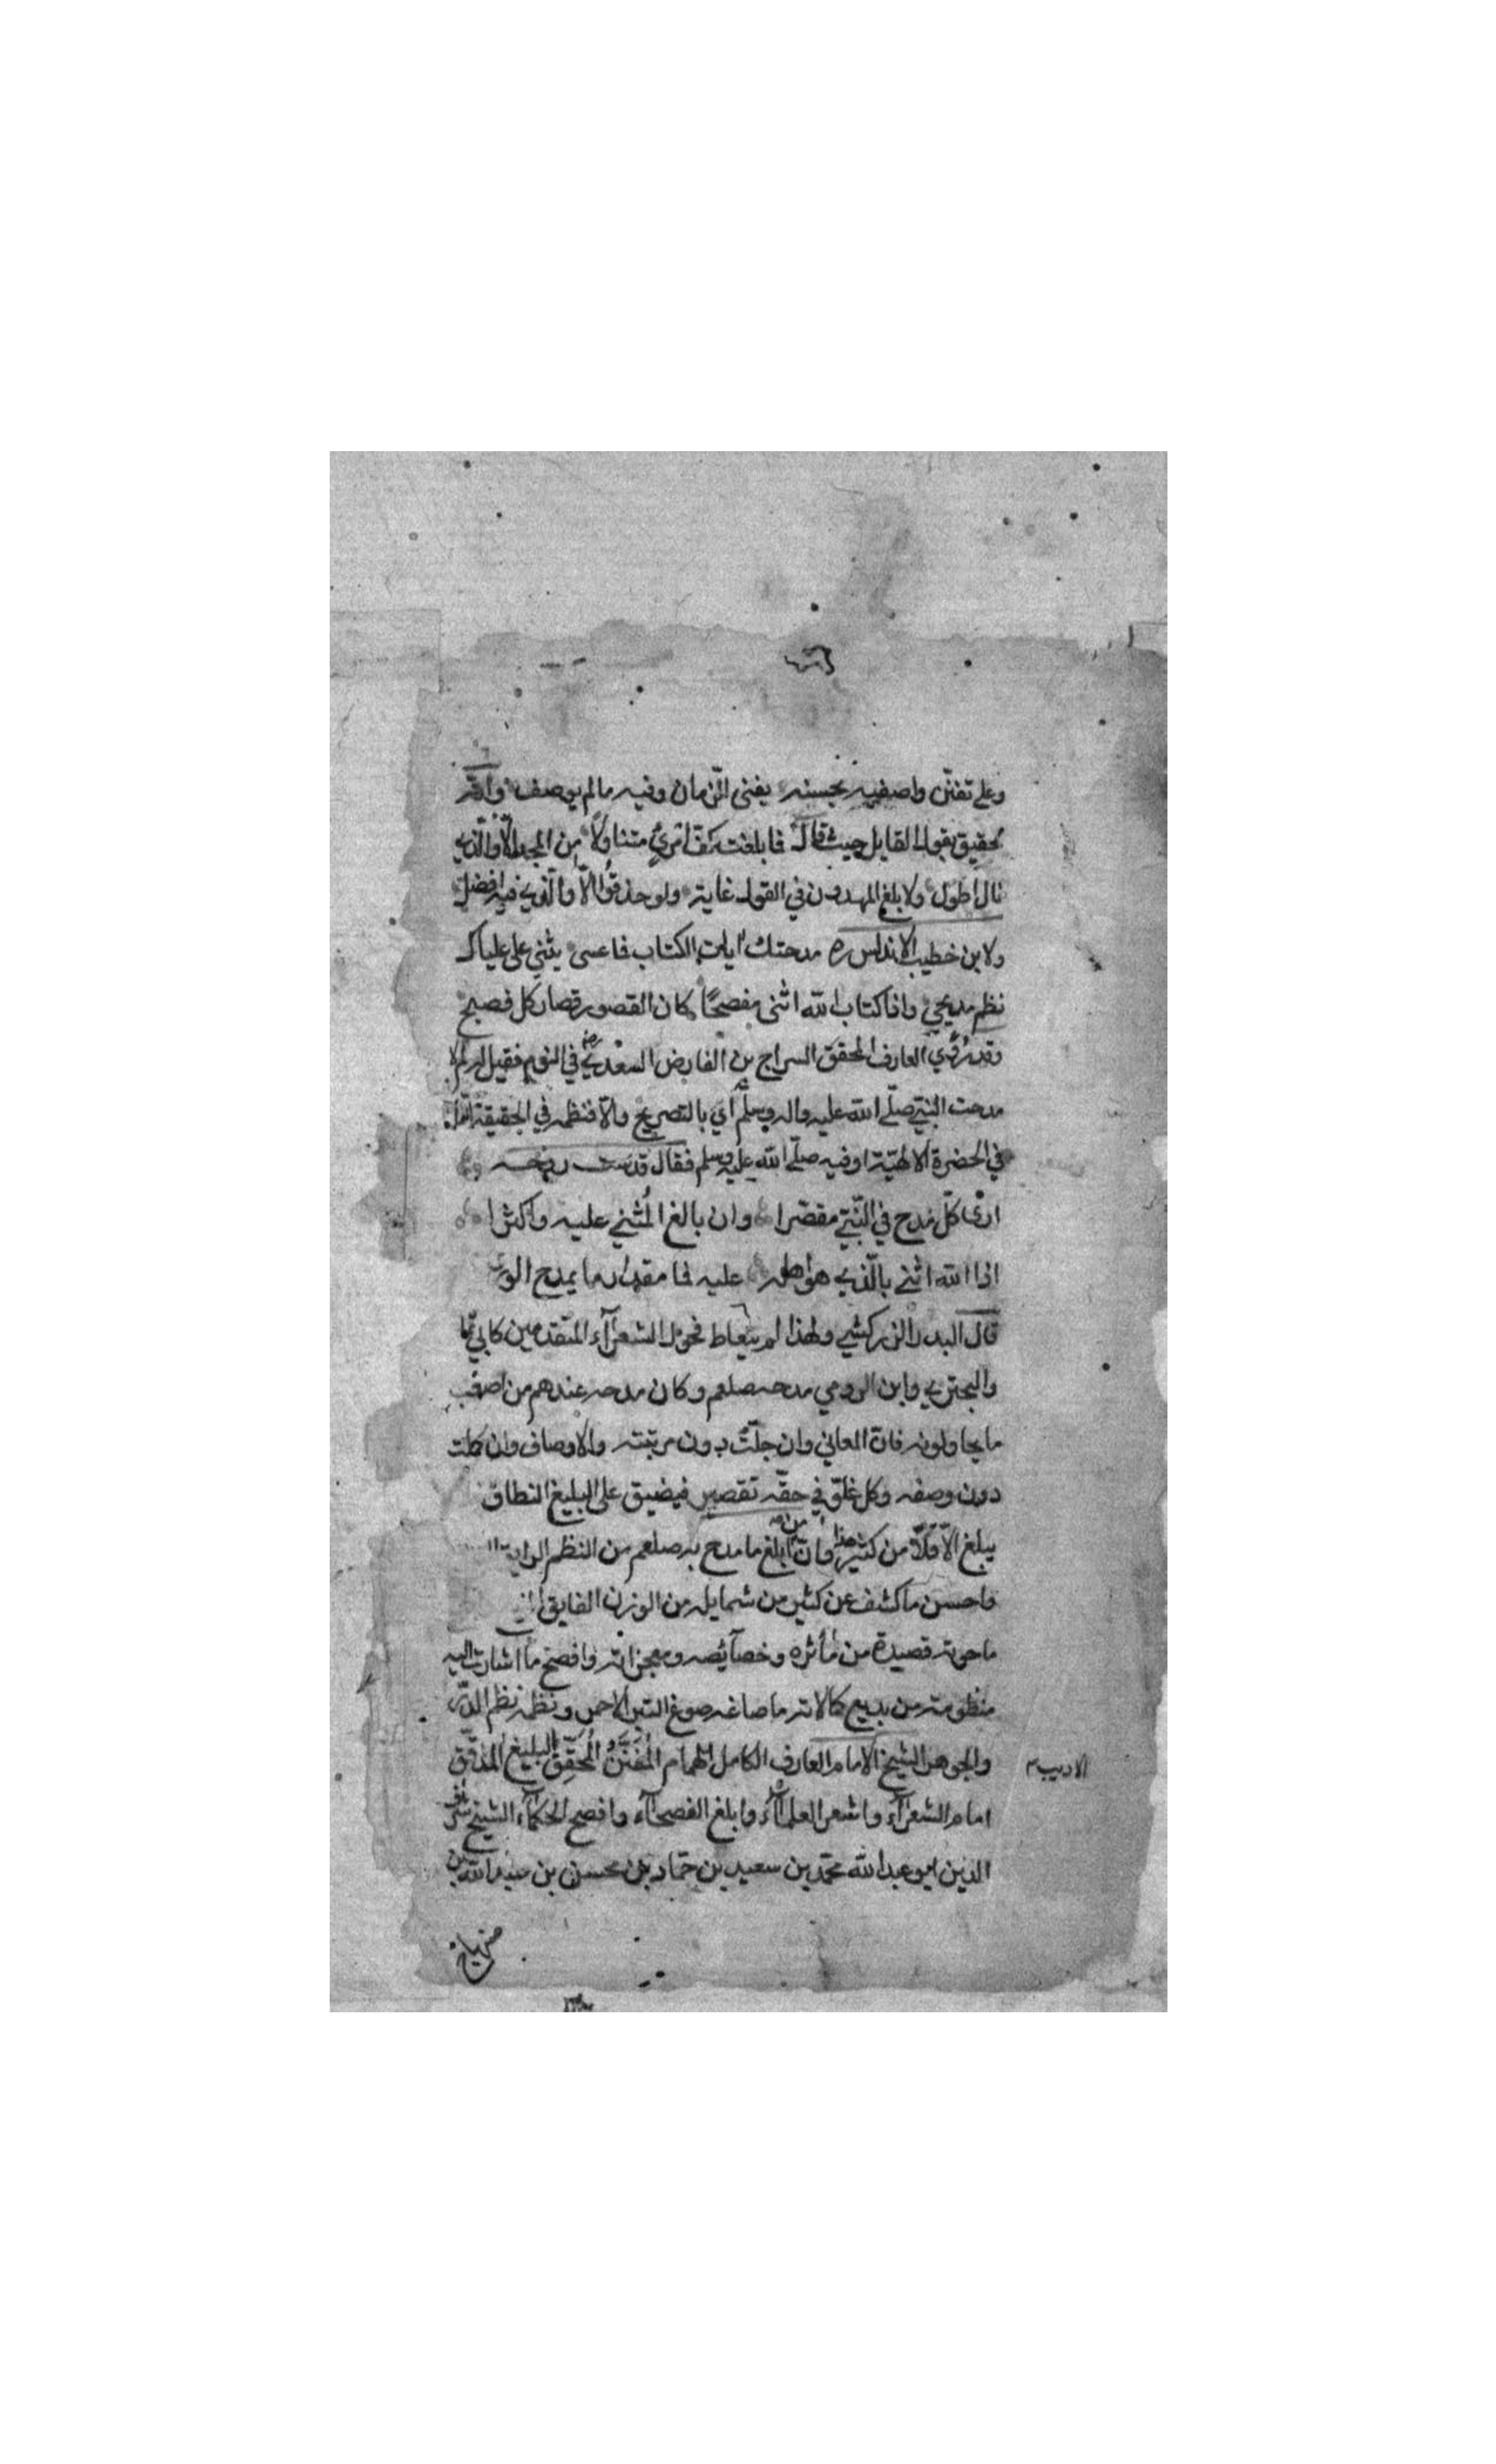 وعلى تفنّن واصفيه بحسنه يفنى الزمان وفيه مالم يوصف وانّه
تحقيق بقول القايل حيث قال فما بلغت كفّ امرئ متناولا من المجد الّا والّذي
نال اطول ولا بلغ المهدون في القول غاية ولو حذقوا الّا والّذي فيه افضل
ولابن خطيب الاندلس ره مدحتك ايات الكتاب فما عسى يثني على علياك
نظم مديحي واذا كتاب الله اثنى مفصحًا كان القصور قصار كل فصيح
وقد رُؤي العارف المحقق السراج بن الفارض السعدي رضي في النوم فقيل له لم لا
مدحت النبيّ صلّى الله عليه واله وسلّم أي بالتصريح والّا فنظمه في الحقيقة امّا
في الحضرة الالهيّة اوفيه صلّى الله عليه وسلم فقال قدست روحه
ارى كلّ مدح في النّبيّ مقصّرا وان بالغ المُثني عليه واكثرا
اذا الله اثنى بالّذي هو اهله عليه فما مقدار ما يمدح الورى
قال البدر الزركشي ولهذا لم يتعاط فحول الشعرآء المتقدمين كابي تمّا
والبحتري وابن الرومي مدحه صلعم وكان مدحه عندهم من اصعب
ما يحاولونه فانّ المعاني وان جلّت دون مرتبته والاوصاف وان كملت
دون وصفه وكل غلوّ في حقّه تقصير فيضيق على البليغ النطاق
يبلغ الّا قلّا من كثير هذا وانّ من ابلغ ما مدح به صلعم من النظم الرايق
واحسن ما كشف عن كثير من شمايله من الوزن الفايق
ما حوته قصيدة من مأثره وخصآئصه ومعجزاته وافصح ما اشارت اليه
منظومة من بديع كمالاته ما صاغه صوغ التبر الاحمر ونظمه نظم الدرّ
والجوهر الشيخ الامام العارف الكامل الهمام المُفنّن المُحقّق البليغ المدقّق
الاديب م
امام الشعرآء واشعر العلمآء وابلغ الفصحآء وافصح الحكمآء الشيخ شرف
الدين ابو عبدالله محمّد بن سعيد بن حمّاد بن محسن بن عبدالله بن
صنهاج